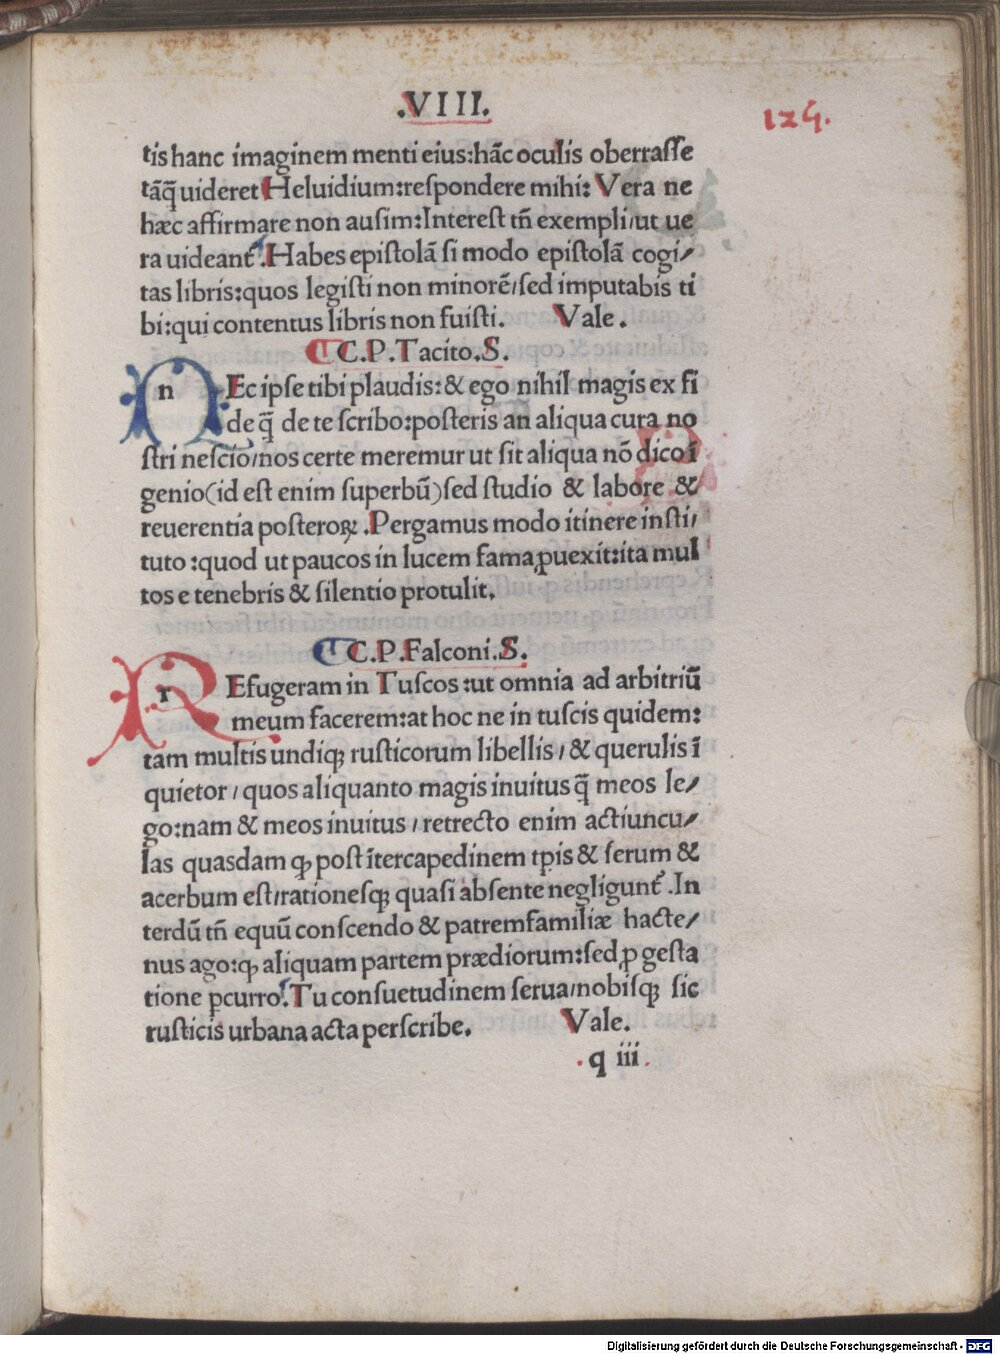 .VIII.
124.
tis hanc imaginem menti eius:hãc oculis oberrasse
tãq̃ uideret Heluidium:respondere mihi: Vera ne
hæc affirmare non ausim:Interest tñ exempli/ut ue
ra uideant᷑.Habes epistolã si modo epistolã cogi/
tas libris:quos legisti non minorẽ/sed imputabis ti
bi:qui contentus libris non fuisti. Vale.
C.P.Tacito.S.
n Ec ipse tibi plaudis:& ego nihil magis ex fi
de q̃ de te scribo:posteris an aliqua cura no
stri nescio/nos certe meremur ut sit aliqua nõ dico ĩ
genio(id est enim superbũ)sed studio & labore &
reuerentia posteroꝝ.Pergamus modo itinere insti/
tuto:quod ut paucos in lucem fama ꝓuexit:ita mul
tos e tenebris & silentio protulit.
C.P.Falconi.S.
r Efugeram in Tuscos:ut omnia ad arbitriũ
meum facerem:at hoc ne in tuscis quidem:
tam multis undiqꝫ rusticorum libellis/& querulis ĩ
quietor/quos aliquanto magis inuitus q̃ meos le/
go:nam & meos inuitus/retrecto enim actiuncu/
las quasdam qꝫ post ĩtercapedinem tꝑis & serum &
acerbum est/rationesqꝫ quasi absente negligunt᷑.In
terdũ tñ equũ conscendo & patremfamiliæ hacte/
nus ago:qꝫ aliquam partem prædiorum:sed ꝓ gesta
tione ꝑcurro.Tu consuetudinem serua/nobisqꝫ sic
rusticis urbana acta perscribe. Vale.
.q iii.
Digitalisierung gefördert durch die Deutsche Forschungsgemeinschaft - DFG